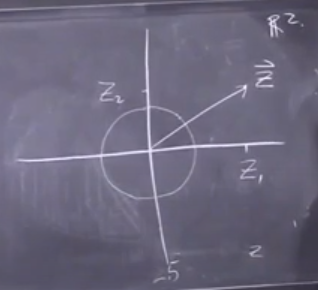 ℝ².
z⃗
Z₂
Z₁
z